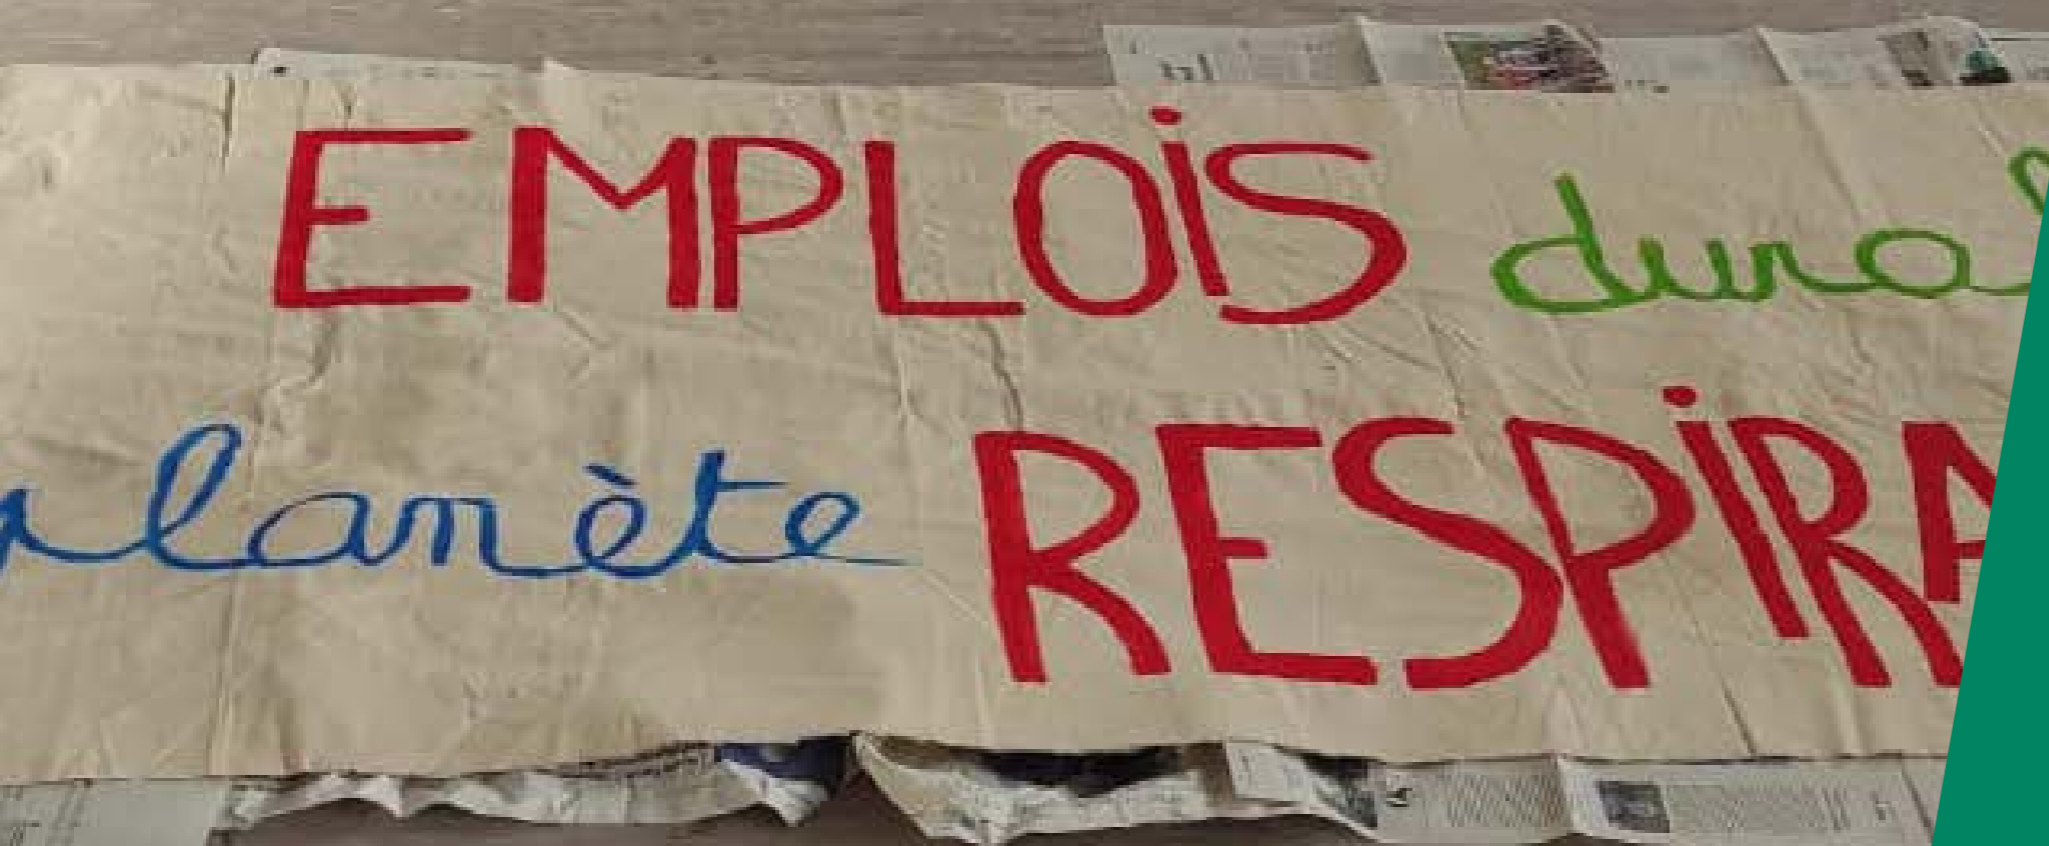 EMPLOiS dura
planète RESPiRA